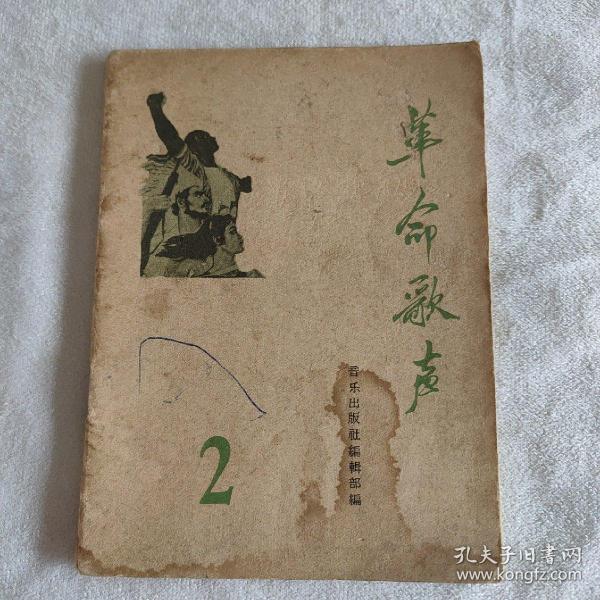 革命歌声
音乐出版社編輯部編
2
孔夫子旧書网
www.kongfz.com